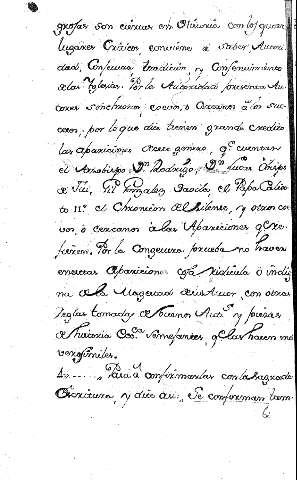 grosas son ciertas en Historia con los quatro
lugares Criticos conviene à saber Autori
dad, Congetura tradicion, y Consentimiento
de las Yglesias. Por la Autoridad presenta Au
tores sonchronos, coevos, ò cercanos à los su
cesos, por lo que dice tienen grande credito
las apariciones de este genero, qe cuentan
el Arzobispo Dn Rodrigo, Dn Lucas Obispo
de Tui, Gonzalez Davila, el Papa Calix
to IIo el Chronicon de Silense, y otros coe
vos, ò cercanos à las Apariciones qe re
fieren. Por la Congetura prueba no haver
en estas Apariciones cosa ridicula ò indig
na de la Magestad de Dios, con otras
reglas tomadas de buenos Auts y piezas
de historia semejantes, qe las hacen mas
verosimiles.
Para confirmarlas con la Sagrada
Escritura, y dice asi: Se conforman tam